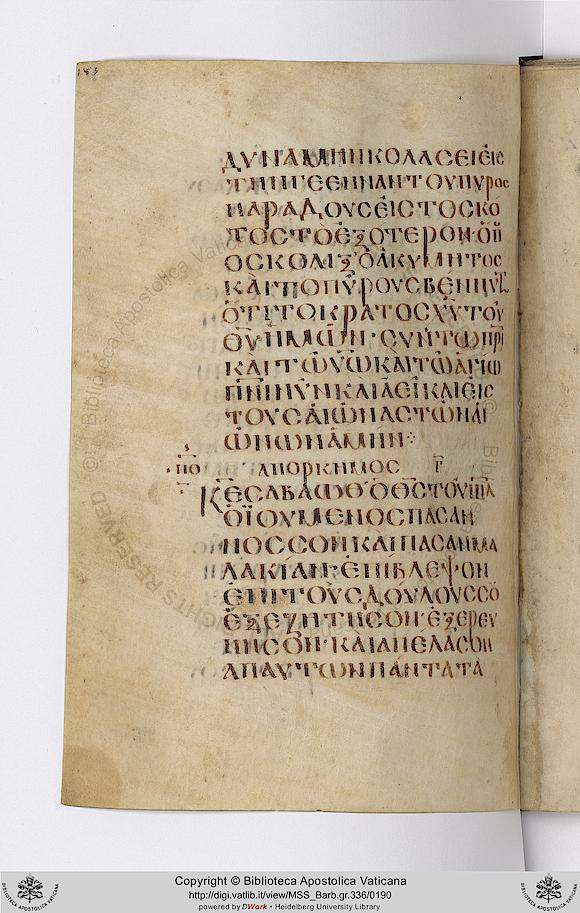 185
ΔΥΝΑΜΙΝ ΚΟΛΑΣΕΙ ΕΙΣ
ΤΗΝ ΓΕΕΝΝΑΝ ΤΟΥ ΠΥΡΟΣ
ΠΑΡΑΔΟΥΣ ΕΙΣ ΤΟ ΣΚΟ
ΤΟΣ ΤΟ ΕΞΟΤΕΡΟΝ· ὍΠ
Ο ΣΚΟΛΙΞ Ὁ ΑΚΥΜΗΤΟΣ
ΚΑΙ ΤΟ ΠΥΡ ΟΥ ΣΒΕΝΝΥ
ὍΤΙ ΤΟ ΚΡΑΤΟΣ ΧΥ ΤΟΥ
ΘΥ ΗΜΩΝ· ΣΥΝ ΤΩ ΠΡΙ
ΚΑΙ ΤΩ ΥΩ ΚΑΙ ΤΩ ΑΓΙΩ
ΠΝΙ ΝΥΝ ΚΑΙ ΑΕΙ ΚΑΙ ΕΙΣ
ΤΟΥΣ ΑΙΩΝΑΣ ΤΩΝ ΑΙ
ΩΝΩΝ ΑΜΗΝ
ΑΠΟΡΚΗΜΟΣ Γ
ΚΕ ΣΑΒΑΩΘ Ὁ ΘΣ ΤΟΥ ΙΗΛ
Ὁ ΙΟΥΜΕΝΟΣ ΠΑΣΑΝ
ΝΟΣΣΟΝ ΚΑΙ ΠΑΣΑΝ ΜΑ
ΛΑΚΙΑΝ· ΕΠΙΒΛΕΨΟΝ
ΕΠΙ ΤΟΥΣ ΔΟΥΛΟΥΣ ΣΟ
ΕΞΕΖΗΤΗΣΟΝ· ΕΞΕΡΕΥ
ΝΗΣΟΝ· ΚΑΙ ΑΠΕΛΑΣΟΝ
ΑΠ ΑΥΤΩΝ ΠΑΝΤΑ ΤΑ
Copyright © Biblioteca Apostolica Vaticana
http://digi.vatlib.it/view/MSS_Barb.gr.336/0190
powered by DWork • Heidelberg University Library